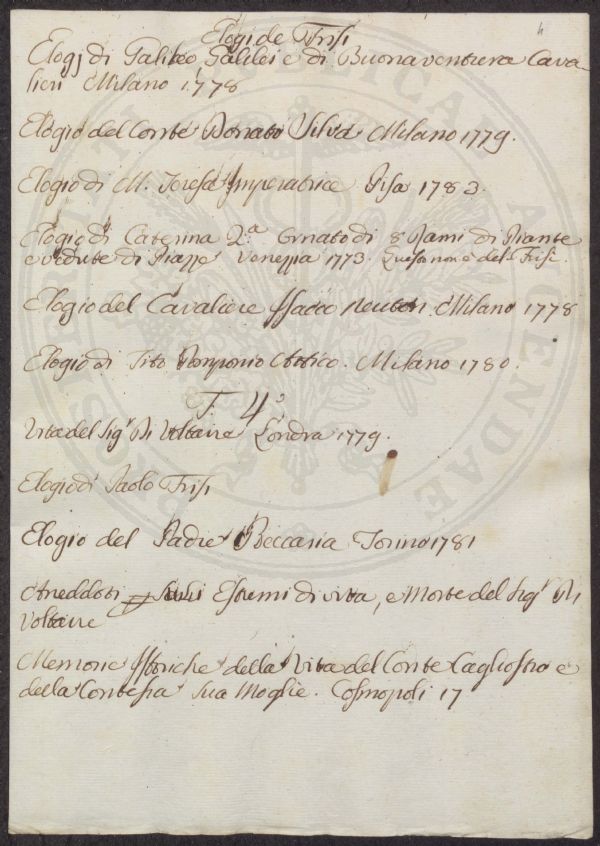 4
Elogj de Frisi
Elogj di Galileo Galilei e di Buonaventura Cava-
lieri Milano 1778
Elogio del Conte Donato Silva Milano 1779.
Elogio di M. Teresa Imperatrice Pisa 1783.
Elogio di Caterina 2.a Ornato di 8 Rami di Piante
e vedute di Piazze Venezia 1773. Questo non è del Frisi.
Elogio del Cavaliere Isacco Neuton. Milano 1778
Elogio di Tito Pomponio Attico. Milano 1780.
T. 4º
Vita del Sigr Di Voltaire Londra 1779.
Elogio di Paolo Frisi
Elogio del Padre Beccaria Torino 1781
Aneddoti Estremi di vita, e Morte del Sigr Di
Voltaire
Memorie Istoriche della Vita del Conte Cagliostro e
della Contessa Sua Moglie. Cosmopoli 17